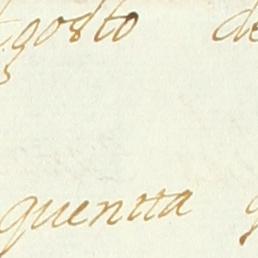 Agosto de
quentta